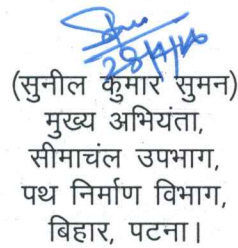 28/4/26
(सुनील कुमार सुमन)
मुख्य अभियंता,
सीमाचंल उपभाग,
पथ निर्माण विभाग,
बिहार, पटना।